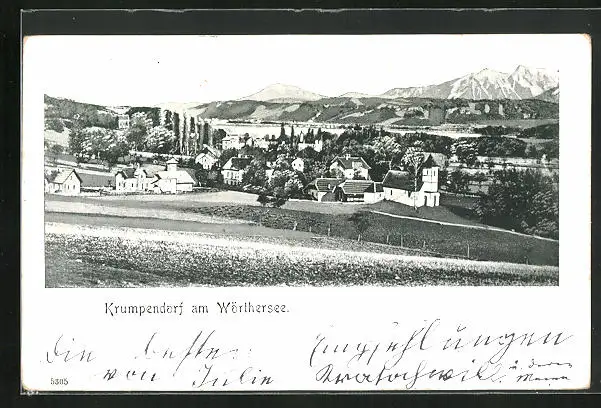 Krumpendorf am Wörthersee.
Die besten Empfehlungen
von Julie Kratochwil u. deren
Mama
5305